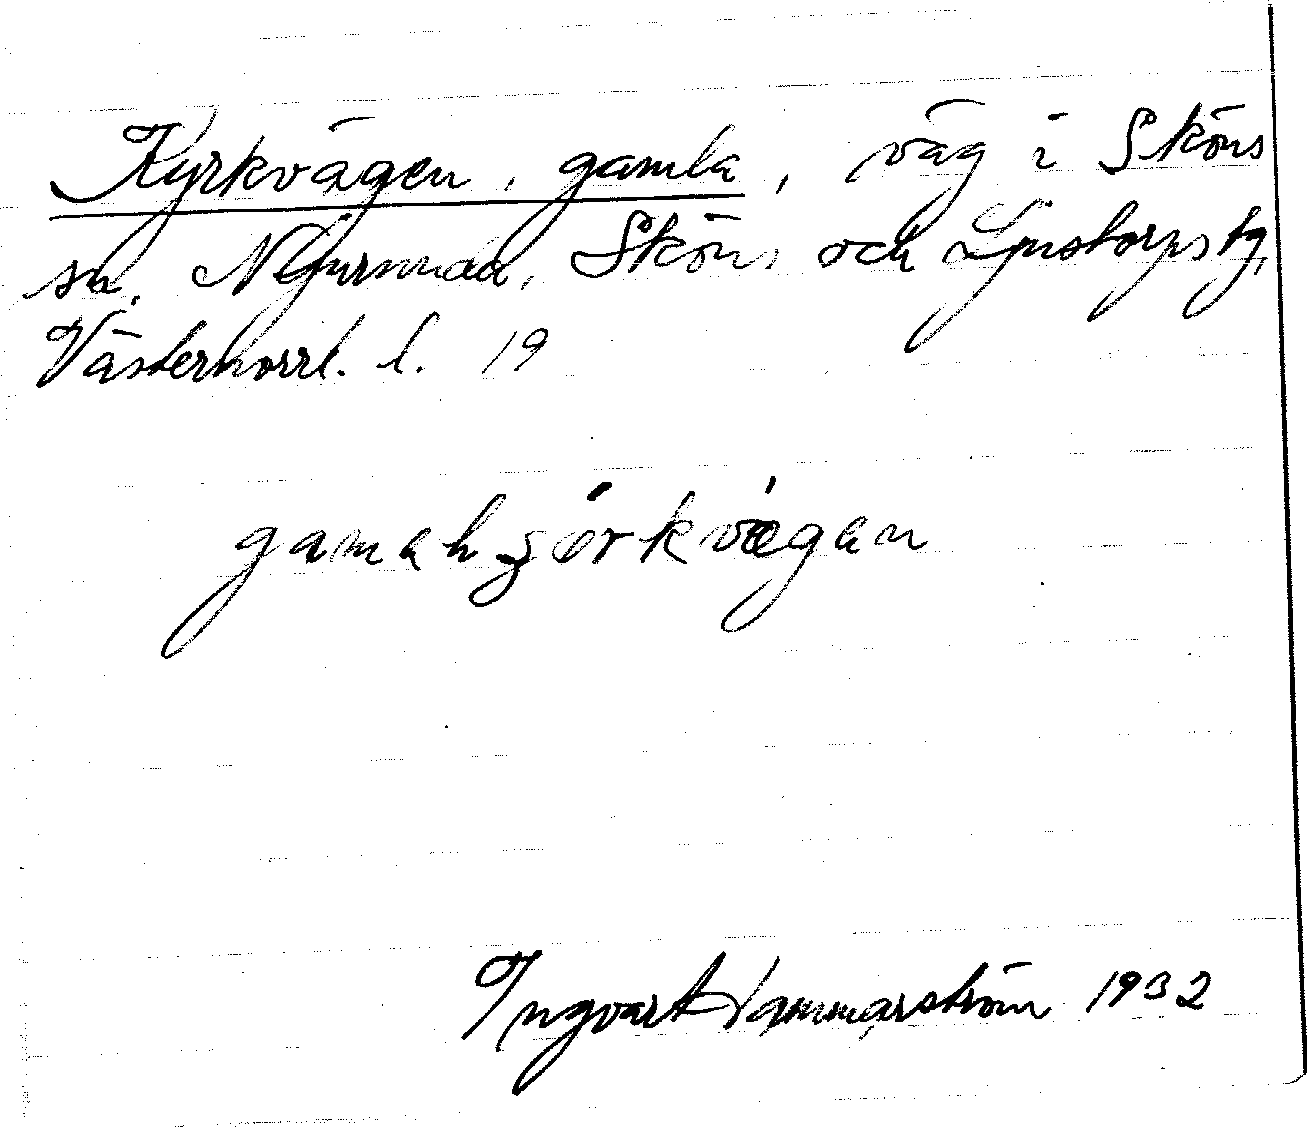 Kyrkvägen, gamla, väg i Sköns
sn. Njurunda, Sköns och Ljustorps tg,
Västernorrl. l. 19
Ingvart Hammarström 1932